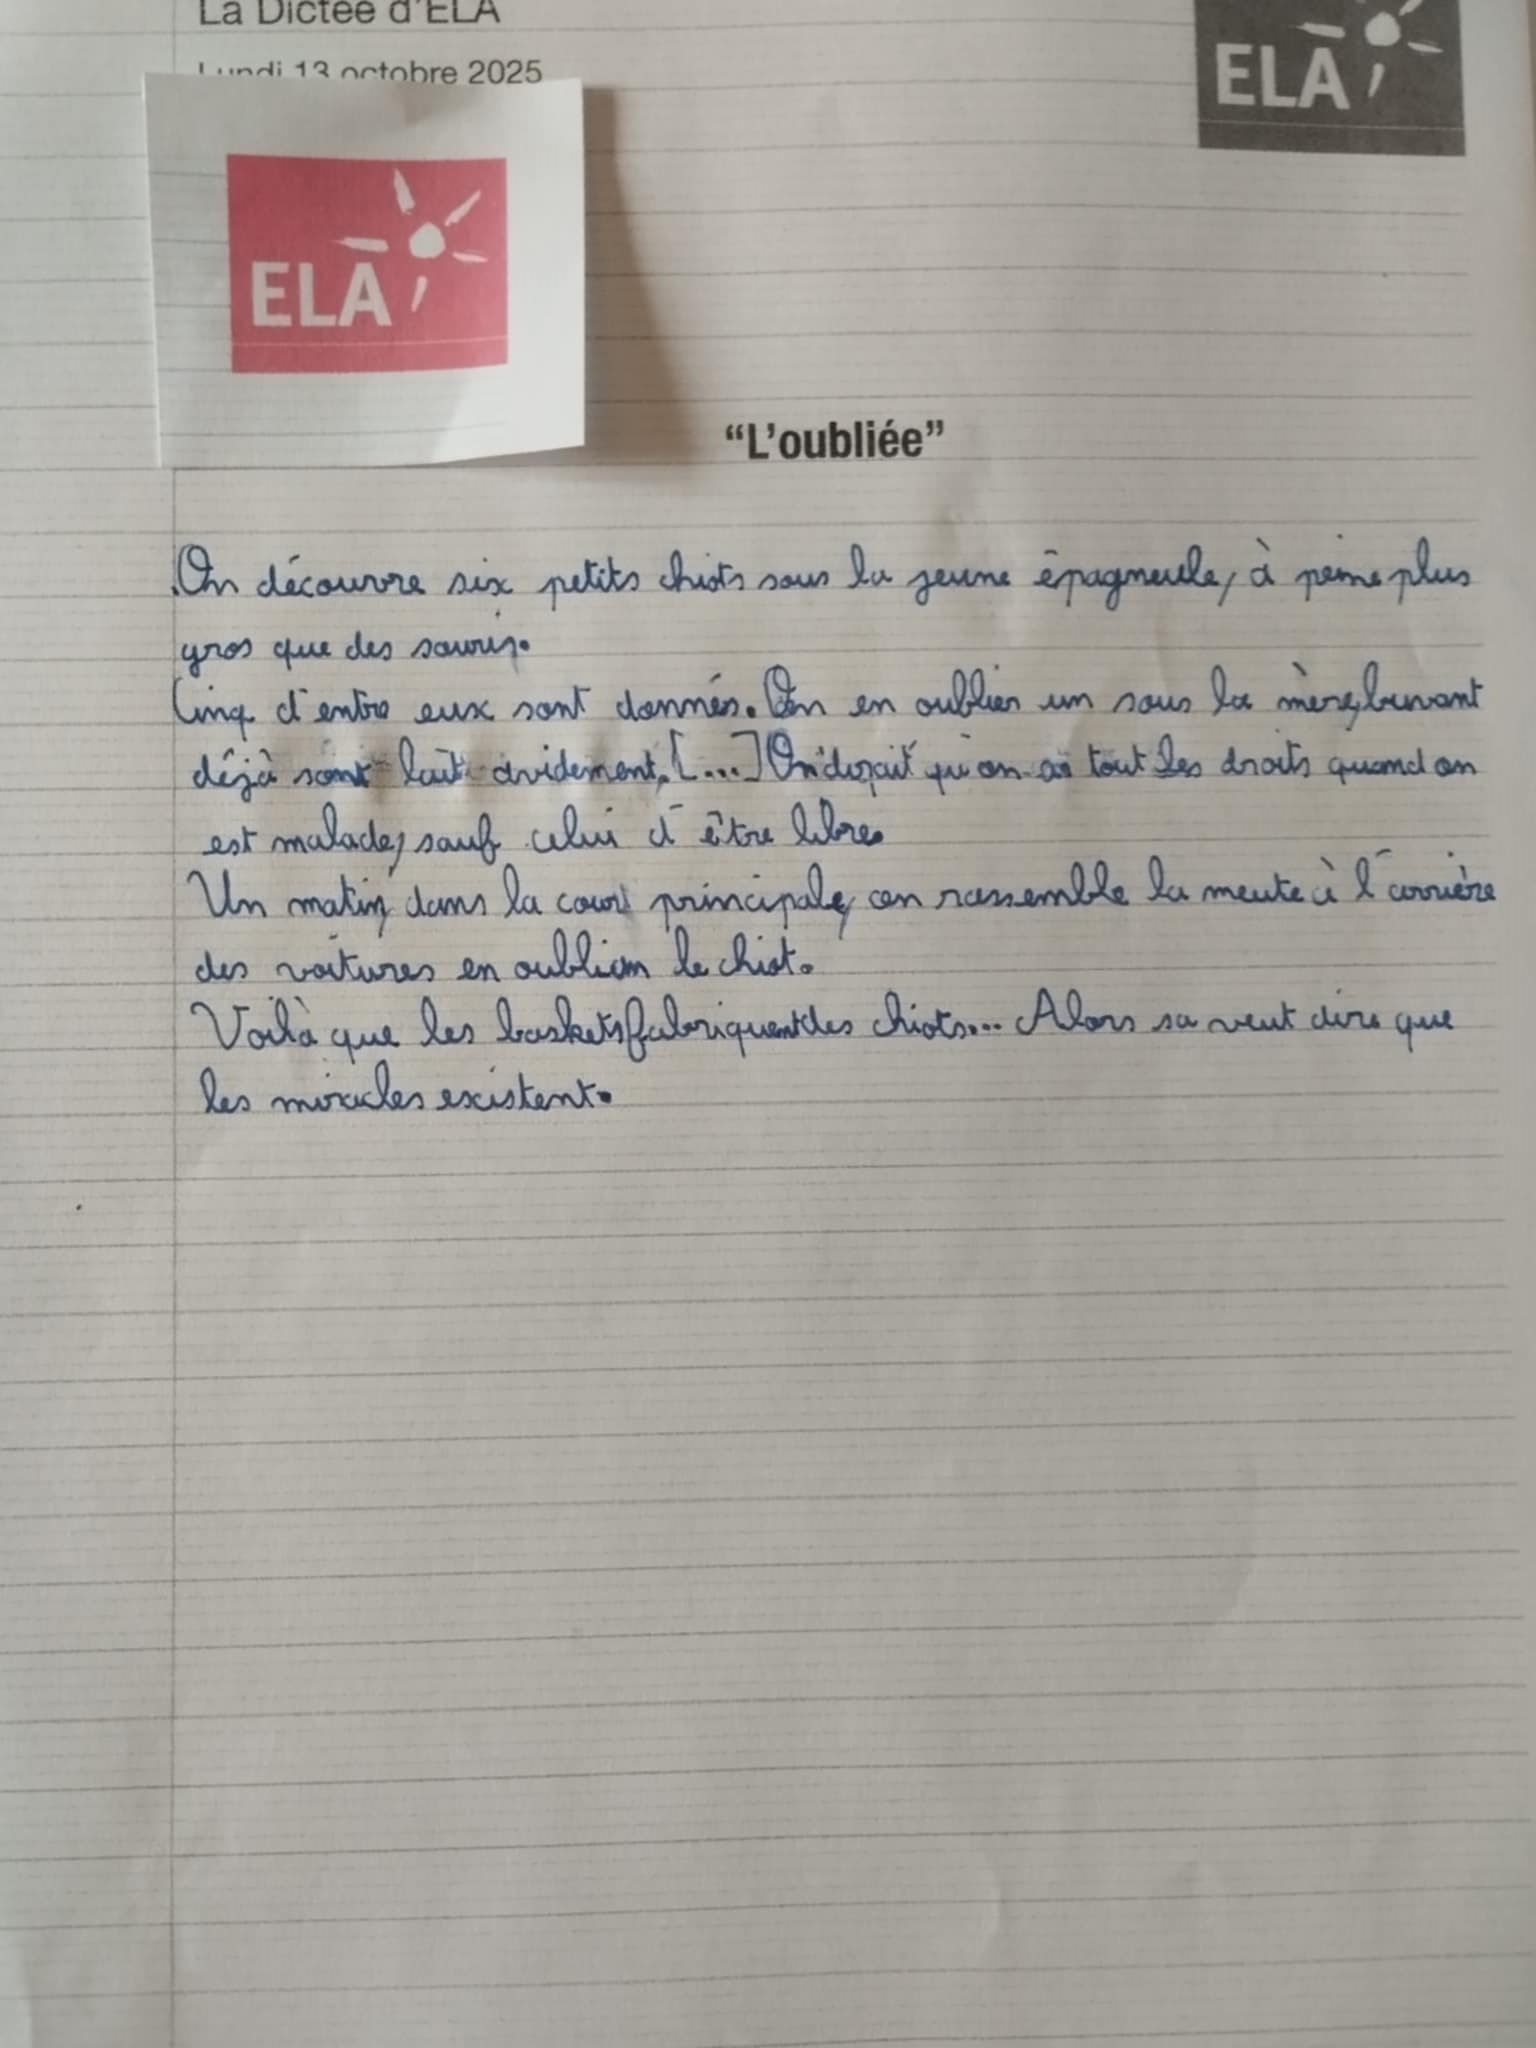 La Dictée d'ELA
Lundi 13 octobre 2025
ELA
ELA
“L'oubliée”
On découvre six petits chiots sous la jeune épagneule, à peine plus
gros que des souris.
Cinq d'entre eux sont donnés. On en oublier un sous la mère, buvant
déjà sont lait avidement. [...] On dirait qu'on a tout les droits quand on
est malade, sauf celui d'être libre.
Un matin, dans la cour principale, on rassemble la meute à l'arrière
des voitures en oublian le chiot.
Voilà que les baskets fabriquent des chiots... Alors sa veut dire que
les miracles existent.